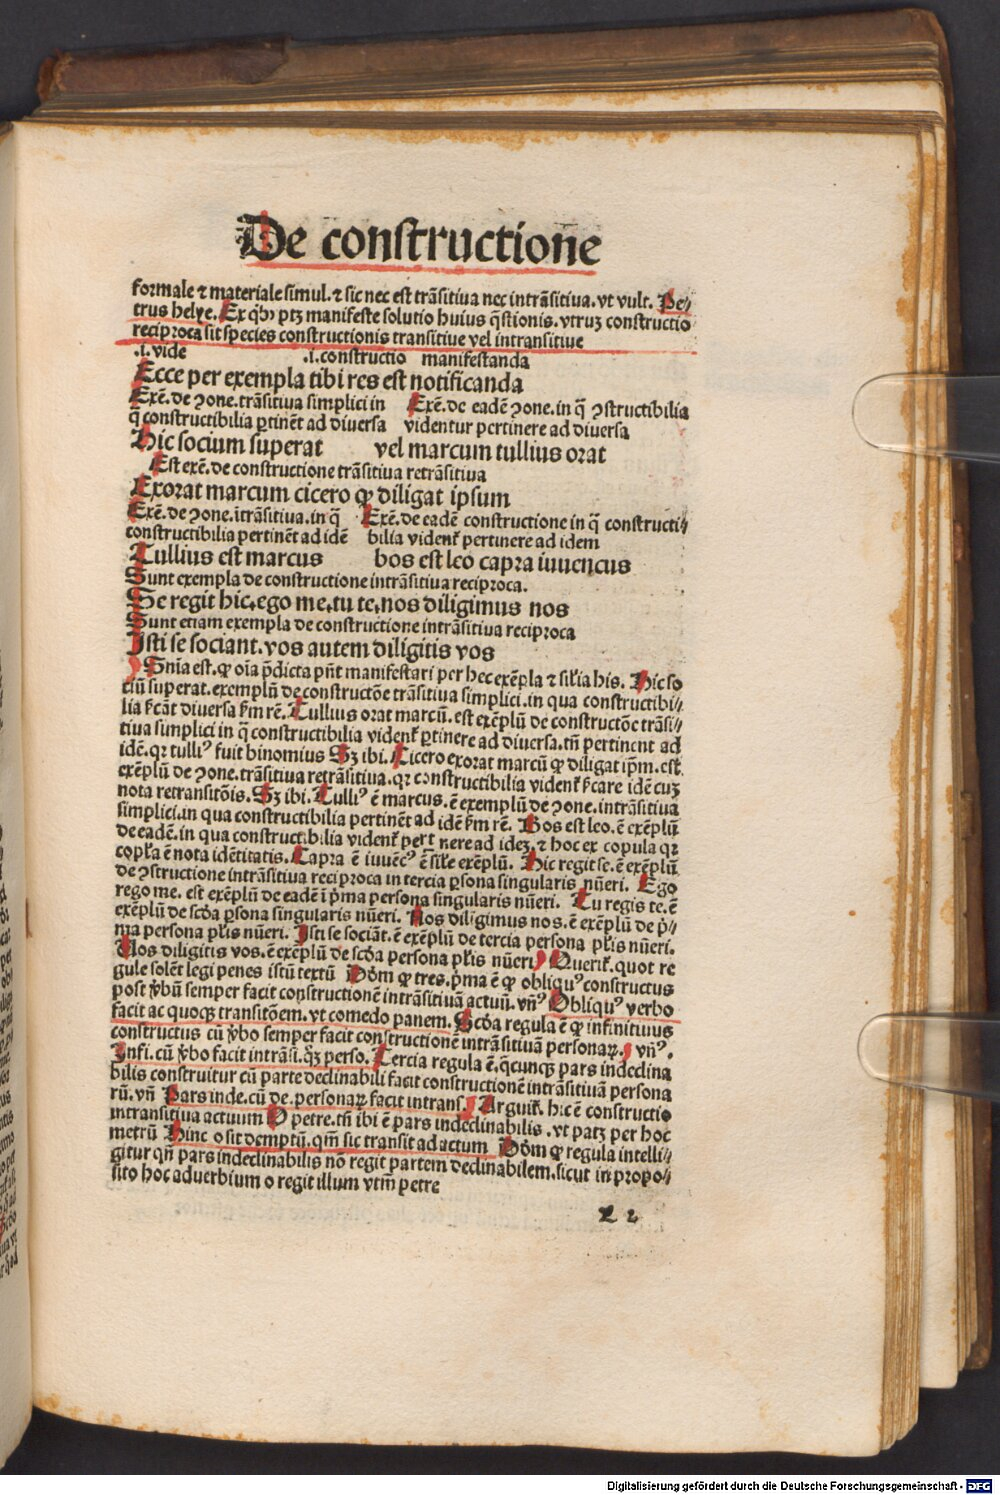 De constructione
formale ⁊ materiale simul. ⁊ sic nec est trãsitiua nec intrãsitiua. vt vult. Pe⸗
trus helye. Ex qbꝰ ptꝫ manifeste solutio huius q̃stionis. vtruꝫ constructio
reciproca sit species constructionis transitiue vel intransitiue
.i. vide .i. constructio manifestanda
Ecce per exempla tibi res est notificanda
Exẽ. de ꝯone. trãsitiua simplici in Exẽ. de eadẽ ꝯone. in q̃ ꝯstructibilia
q̃ constructibilia ꝑtinẽt ad diuersa videntur pertinere ad diuersa
Hic socium superat vel marcum tullius orat
Est exẽ. de constructione trãsitiua retrãsitiua
Exorat marcum cicero ꝙ diligat ipsum
Exẽ. de ꝯone. itrãsitiua. in q̃ Exẽ. de eadẽ constructione in q̃ constructi⸗
constructibilia pertinẽt ad idẽ bilia vident̃ pertinere ad idem
Tullius est marcus bos est leo capra iuuencus
Sunt exempla de constructione intrãsitiua reciproca.
Se regit hic. ego me. tu te. nos diligimus nos
Sunt etiam exempla de constructione intrãsitiua reciproca
Isti se sociant. vos autem diligitis vos
Snĩa est. ꝙ oĩa p̃dicta pñt manifestari per hec exẽpla ⁊ sil̃ia his. Hic so
ciũ superat. exemplũ de constructõe trãsitiua simplici. in qua constructibi⸗
lia s̃cãt diuersa s̃m rẽ. Tullius orat marcũ. est exẽplũ de constructõe trãsi⸗
tiua simplici in q̃ constructibilia vident̃ ꝑtinere ad diuersa. tñ pertinent ad
idẽ. qꝛ tulliꝰ fuit binomius Sꝫ ibi. Cicero exorat marcũ ꝙ diligat ip̃m. est
exẽplũ de ꝯone. trãsitiua retrãsitiua. qꝛ constructibilia vident̃ s̃care idẽ cuꝫ
nota retransitõis. Sꝫ ibi. Tulliꝰ ẽ marcus. ẽ exemplũ de ꝯone. intrãsitiua
simplici. in qua constructibilia pertinẽt ad idẽ s̃m rẽ. Bos est leo. ẽ exẽplũ
de eadẽ. in qua constructibilia vident̃ pertinere ad ideꝫ. ⁊ hoc ex copula qꝛ
copl̃a ẽ nota idẽtitatis. Capra ẽ iuuẽcꝰ ẽ sil̃e exẽplũ. Hic regit se. ẽ exẽplũ
de ꝯstructione intrãsitiua reciproca in tercia ꝑsona singularis nũeri. Ego
rego me. est exẽplũ de eadẽ ĩ p̃ma persona singularis nũeri. Tu regis te. ẽ
exẽplũ de scḋa ꝑsona singularis nũeri. Nos diligimus nos. ẽ exẽplũ de p̃⸗
ma persona pl̃is nũeri. Isti se sociãt. ẽ exẽplũ de tercia persona pl̃is nũeri.
Uos diligitis vos. ẽ exẽplũ de scḋa persona pl̃is nũeri Querit̃. quot re
gule solẽt legi penes istũ textũ Dḋm ꝙ tres. p̃ma ẽ ꝙ obliquꝰ constructus
post v̓bũ semper facit constructionẽ intrãsitiuã actuũ. vñꝰ Obliquꝰ verbo
facit ac quocꝫ transitõem. vt comedo panem. Scḋa regula ẽ ꝙ infinitiuus
constructus cũ v̓bo semper facit constructionẽ intrãsitiuã personaꝝ. vñꝰ.
Infi. cũ v̓bo facit intrãsi. q̃ꝫ perso. Tercia regula ẽ. q̃cunqꝫ pars indeclina
bilis construitur cũ parte declinabili facit constructionẽ intrãsitiuã persona
rũ. vñ Pars inde. cũ de. personaꝝ facit intrans. Arguit̃. hic ẽ constructio
intransitiua actuum O petre. tñ ibi ẽ pars indeclinabilis. vt patꝫ per hoc
metrũ Hinc o sit demptũ. qm̃ sic transit ad actum Dḋm ꝙ regula intelli⸗
gitur qñ pars indeclinabilis nõ regit partem declinabilem. sicut in propo⸗
sito hoc aduerbium o regit illum vtm̃ petre
Digitalisierung gefördert durch die Deutsche Forschungsgemeinschaft - DFG